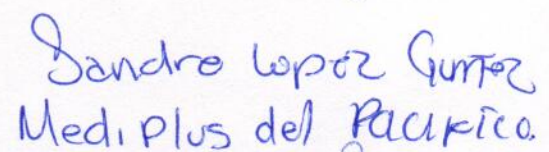 Sandro Lopez
Mediplus del Pacifico.